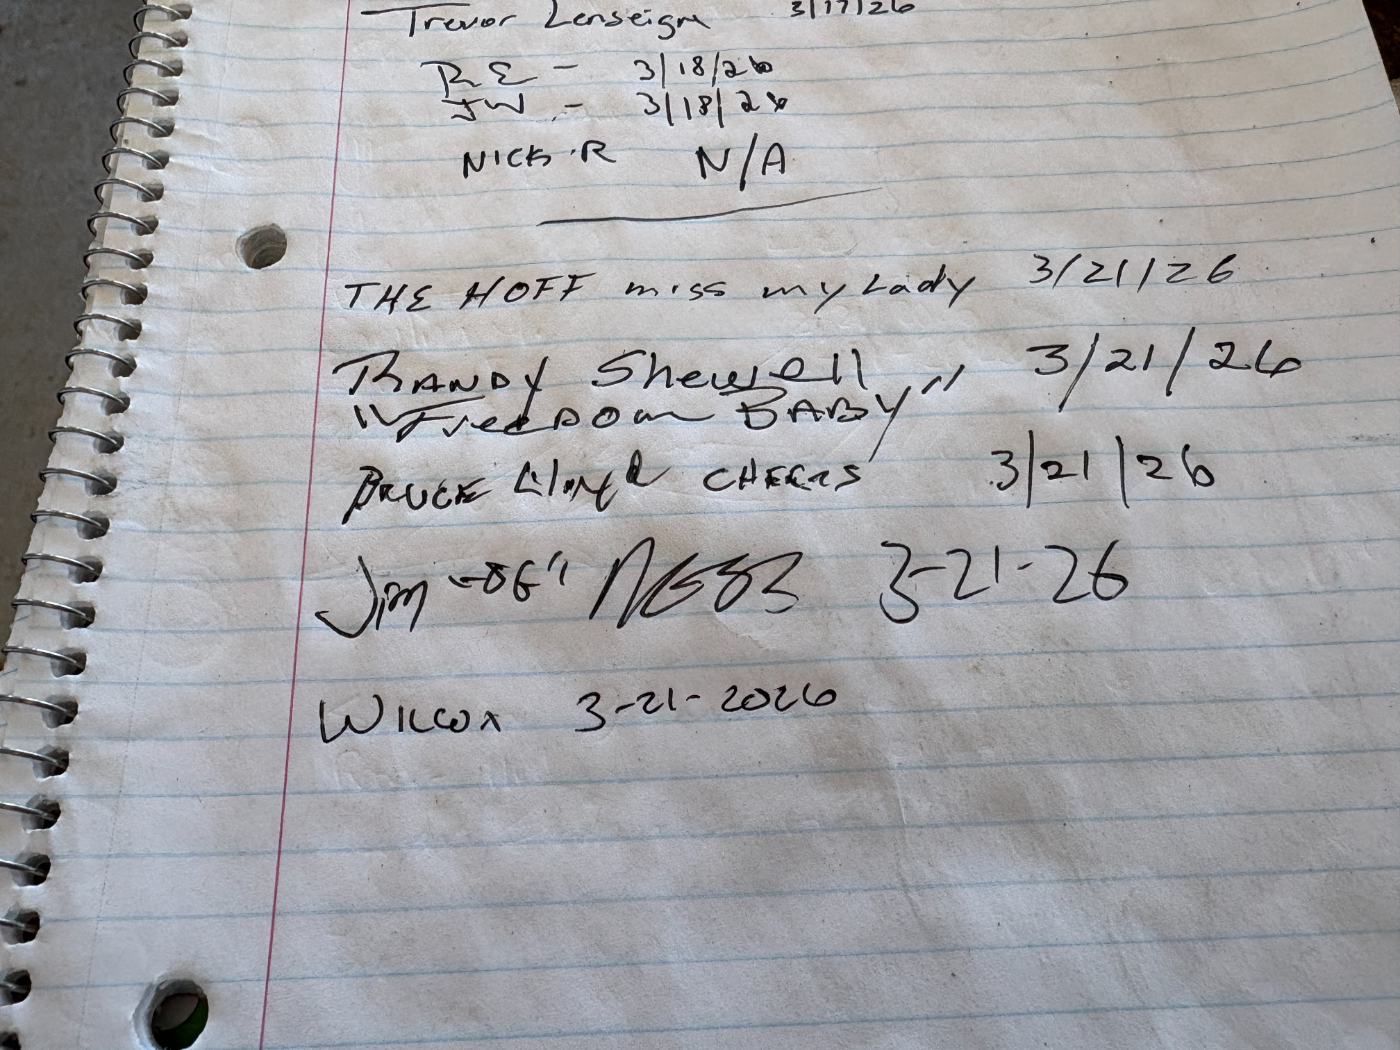 Trevor Lenseigne 3/17/26
R E - 3/18/26
JW - 3/18/26
NICK R N/A
THE HOFF miss my Lady 3/21/26
RANDY Shewell 3/21/26
"FreeDom BABY"
BRUCE CHEERS 3/21/26
Jim 3-21-26
WILCOX 3-21-2026